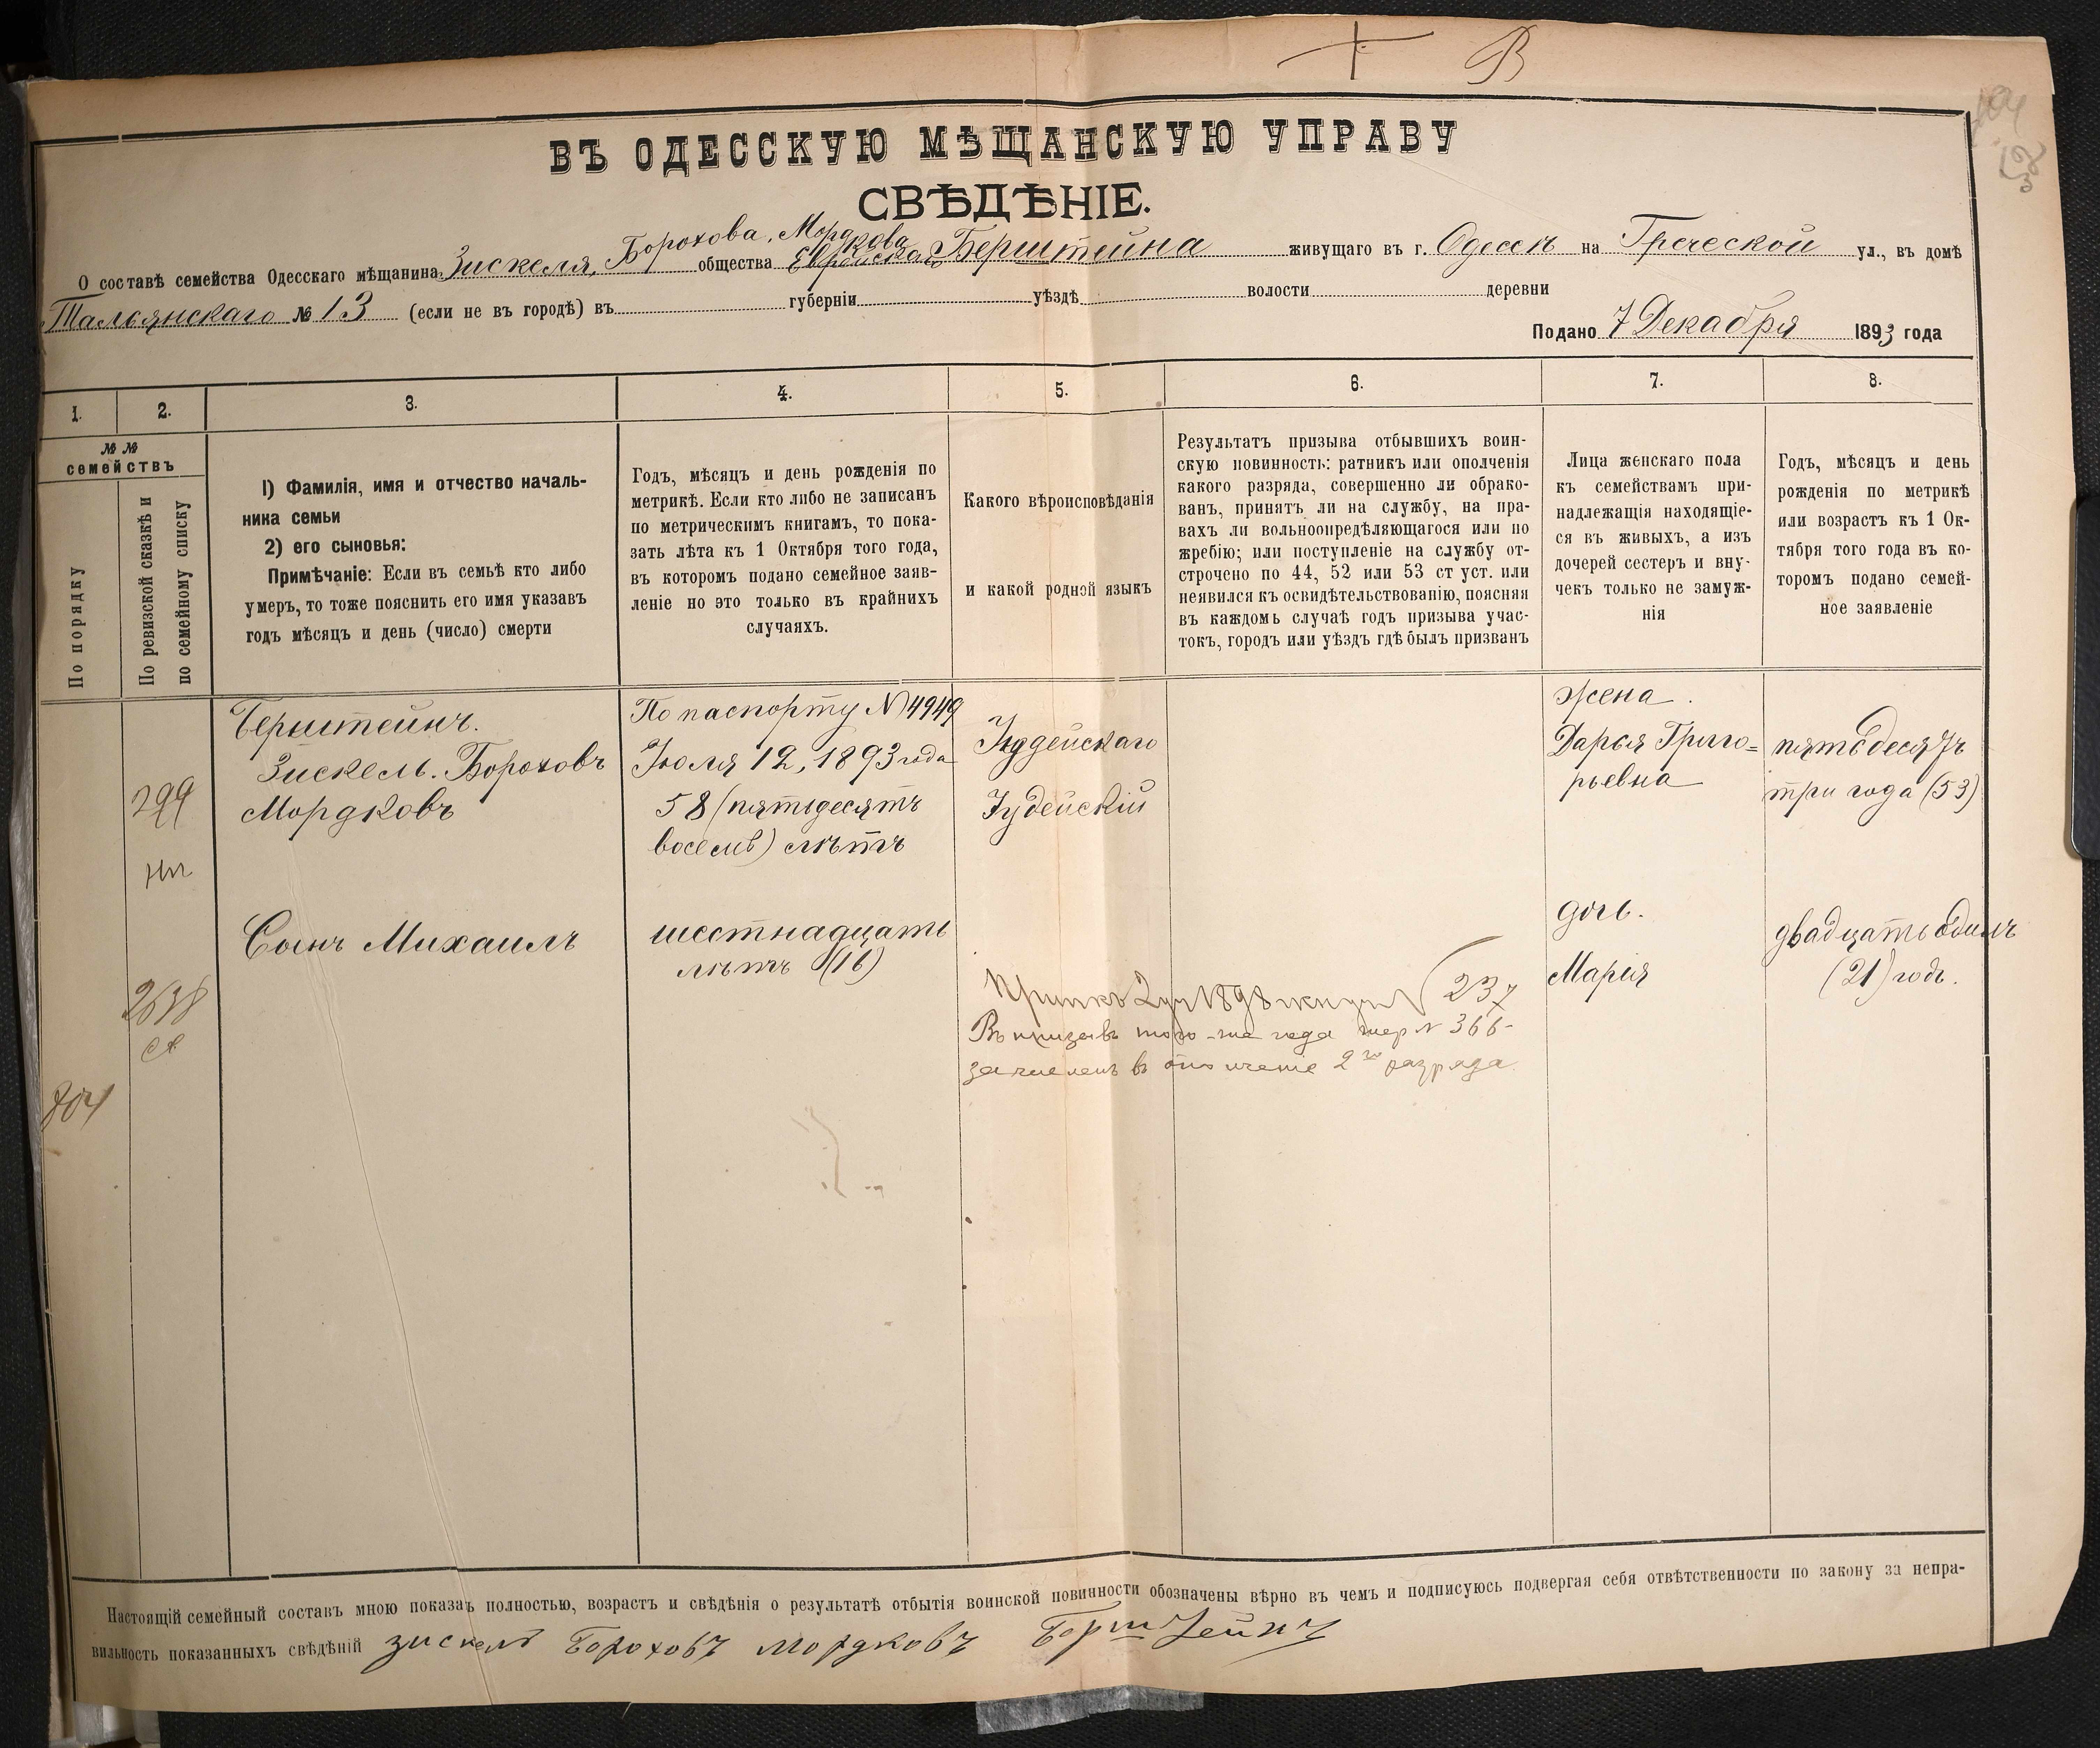 В
ВЪ ОДЕССКУЮ МѢЩАНСКУЮ УПРАВУ
СВѢДѢНІЕ.
О составѣ семейства Одесскаго мѣщанина Зискеля, Борохова, Мордкова общества Еврейскаго Берштейна живущаго въ г. Одессѣ на Греческой ул., въ домѣ
Тальянскаго № 13 (если не въ городѣ) въ губерніи уѣздѣ волости деревни
Подано 7 Декабря 1893 года
1. 2. 3. 4. 5. 6. 7. 8.
№ № семействъ
По порядку
По ревизской сказкѣ и
по семейному списку
I) Фамилія, имя и отчество началь-
ника семьи
2) его сыновья:
Примѣчаніе: Если въ семьѣ кто либо
умеръ, то тоже пояснить его имя указавъ
годъ мѣсяцъ и день (число) смерти
Годъ, мѣсяцъ и день рожденія по
метрикѣ. Если кто либо не записанъ
по метрическимъ книгамъ, то пока-
зать лѣта къ 1 Октября того года,
въ которомъ подано семейное заяв-
леніе но это только въ крайнихъ
случаяхъ.
Какого вѣроисповѣданія
и какой родной языкъ
Результатъ призыва отбывшихъ воин-
скую повинность: ратникъ или ополченія
какого разряда, совершенно ли обрако-
ванъ, принятъ ли на службу, на пра-
вахъ ли вольноопредѣляющагося или по
жребію; или поступленіе на службу от-
строчено по 44, 52 или 53 ст уст. или
неявился къ освидѣтельствованію, поясняя
въ каждомъ случаѣ годъ призыва учас-
токъ, городъ или уѣздъ гдѣ былъ призванъ
Лица женскаго пола
къ семействамъ при-
надлежащія находящіе-
ся въ живыхъ, а изъ
дочерей сестеръ и вну-
чекъ только не замуж-
нія
Годъ, мѣсяцъ и день
рожденія по метрикѣ
или возрастъ къ 1 Ок-
тября того года въ ко-
торомъ подано семей-
ное заявленіе
299
Берштейнъ.
Зискель. Бороховъ
Мордковъ
По паспорту N 4949
Іюля 12, 1893 года
58 (пятьдесятъ
восемь) лѣтъ
Іудейскаго
Іудейскій
жена.
Дарья Григо=
рьевна
пятьдесятъ
три года (53)
Сынъ Михаилъ
шестнадцать
лѣтъ (16)
дочь.
Марія
двадцать одинъ
(21) годъ.
2638
237
Въ призывъ того-же года жер N 366-
зачисленъ въ ополченіе 2го разряда.
704
Настоящій семейный составъ мною показанъ полностью, возрастъ и свѣдѣнія о результатѣ отбытія воинской повинности обозначены вѣрно въ чемъ и подписуюсь подвергая себя отвѣтственности по закону за непра-
вильность показанныхъ свѣдѣній зискель Бороховъ мордковъ Берштейнъ